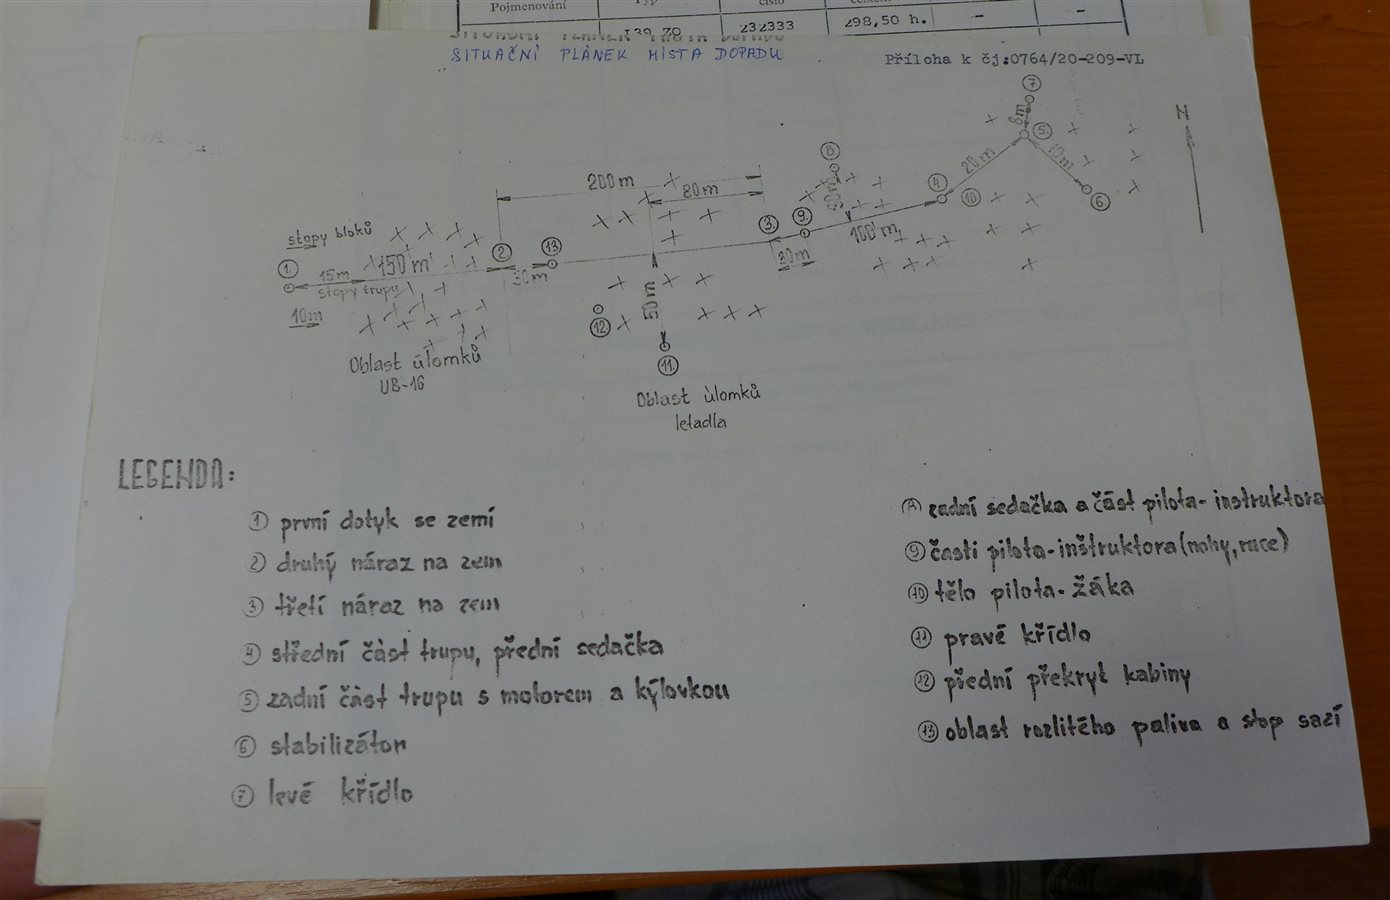 Pojmenování
číslo
L39 ZO
232333
298,50 h.
-
-
SITUAČNÍ PLÁNEK MÍSTA DOPADU
Příloha k čj:0764/20-209-VL
N
7
8m
5
20m
10m
6
8
4
10
200m
80m
30m
3
9
100m
30m
stopy bloků
1
15m
150m
stopy trupu
10m
2
13
30m
50m
12
11
Oblast úlomků
UB-16
Oblast úlomků
letadla
LEGENDA:
1 první dotyk se zemí
2 druhý náraz na zem
3 třetí náraz na zem
4 střední část trupu, přední sedačka
5 zadní část trupu s motorem a kýlovkou
6 stabilizátor
7 levé křídlo
8 zadní sedačka a část pilota-instruktora
9 časti pilota-inštruktora (nohy, ruce)
10 tělo pilota-žáka
11 pravé křídlo
12 přední překryt kabiny
13 oblast rozlitého paliva a stop sazí